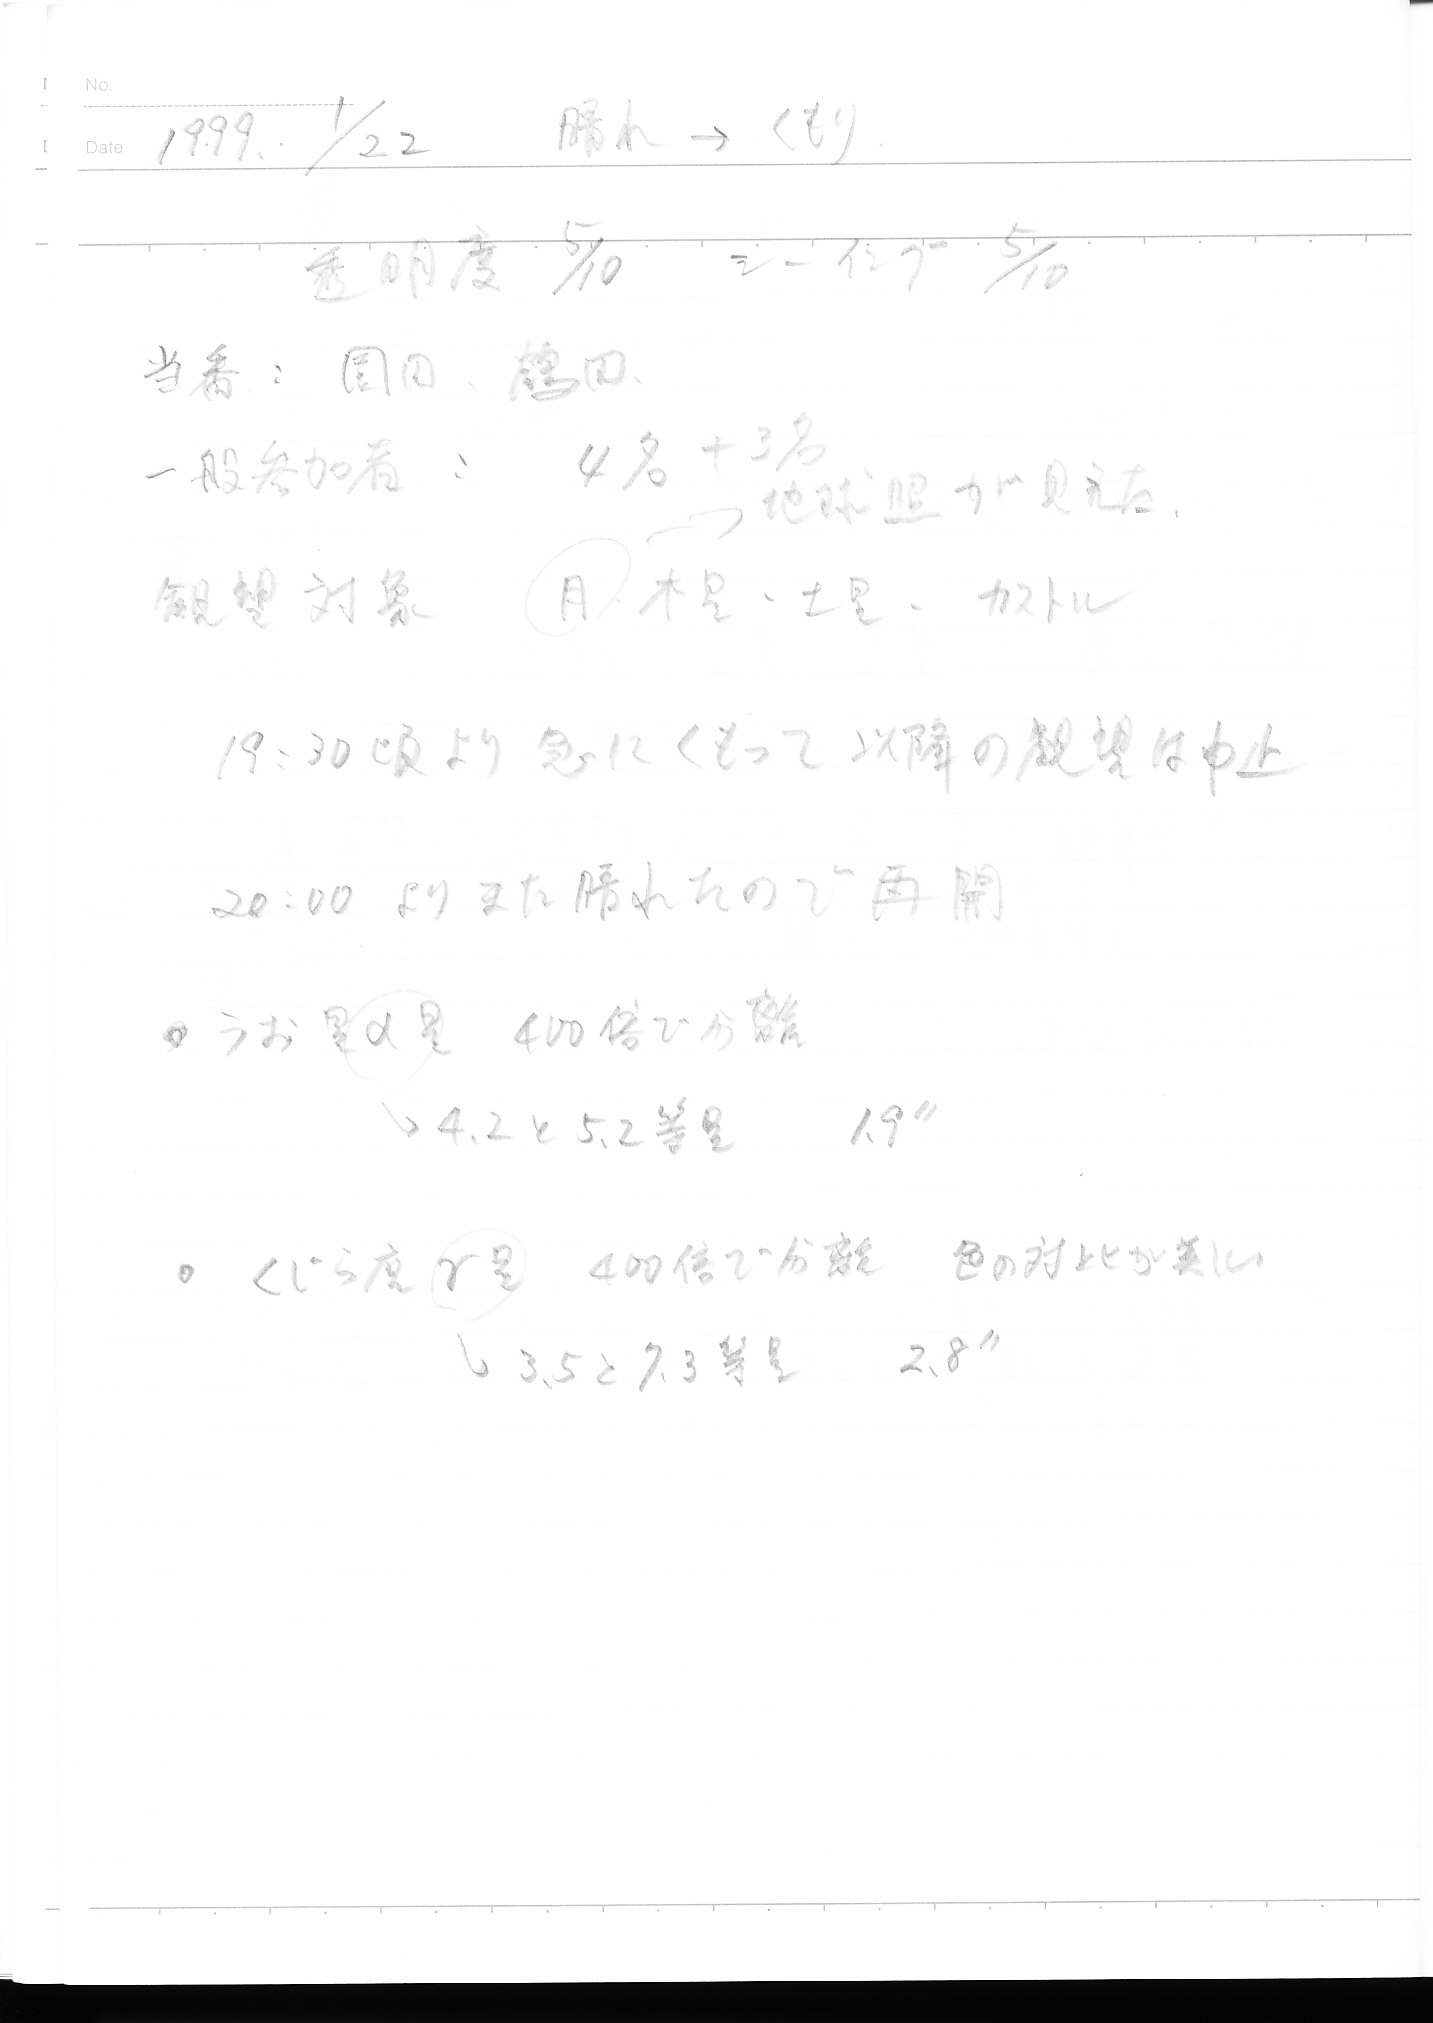 No.
Date 1999. 1/22 晴れ → くもり
透明度 5/10 シーイング 5/10
当番: 園田、鶴田、
一般参加者: 4名 + 3名
→ 地球照が見えた.
観望対象 月. 木星、土星、カストル
19:30頃より急にくもって以降の観望は中止
20:00よりまた晴れたので再開
○ うお星α星 400倍で分離
↳ 4.2と5.2等星 1.9″
○ くじら座γ星 400倍で分離 色の対比が美しい
↳ 3.5と7.3等星 2.8″